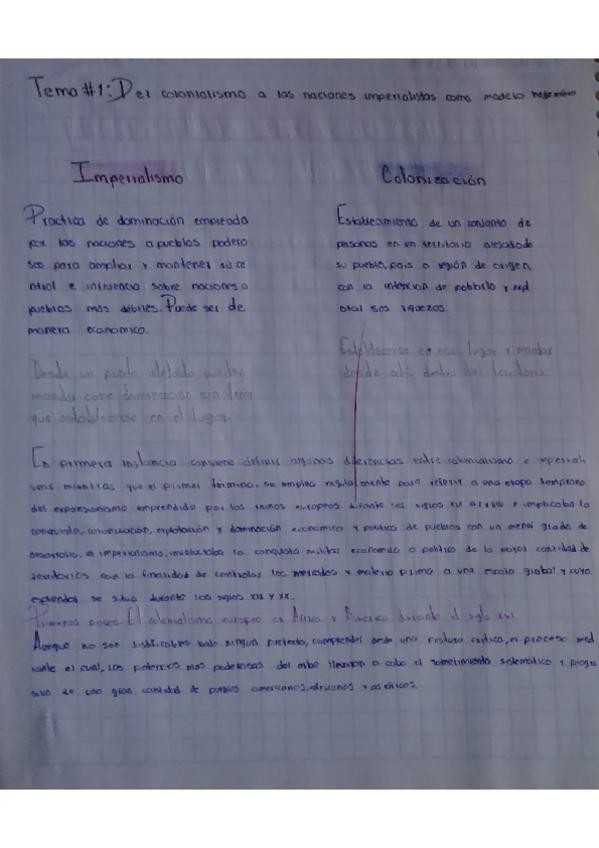 Tema #1: Del colonialismo a las naciones imperialistas como modelo
Imperialismo
Practica de dominación empleada
por las naciones a pueblos podero
sos para ampliar y mantener su co
ntrol e influencia sobre naciones o
pueblos mas débiles. Puede ser de
manera economico.
Desde un punto alejado pueden
mandar como dominación sin tener
que establecerse en el lugar.
Colonización
Establecimiento de un conjunto de
personas en un territorio alejado de
su pueblo, pais o región de origen,
con la intención de poblarlo y expl
otar sus riquezas.
Establecerse en ese lugar y mandar
desde ahi dentro del territorio
En primera instancia conviene definir algunas diferencias entre colonialismo e imperiali
smo, mientras que el primer término, se emplea regularmente para referir a una etapa temprana
del expansionismo emprendido por los reinos europeos durante los siglos XVI al XVIII e implicaba la
conquista, colonización, explotación y dominación económica y politica de pueblos con un menor grado de
desarrollo, el imperialismo, involucraba la conquista militar economico o politico de la mayor cantidad de
territorios con la finalidad de controlar los mercados y materia prima a una escala global y cuyo
esplendor se situa durante los siglos XIX y XX.
Primeros pasos. El colonialismo europeo en Africa y America durante el siglo XVI
Aunque no son justificables bajo ningún pretexto, comprender desde una postura critica, el proceso med
iante el cual, las potencias mas poderosas del llevaron a cabo el sometimiento sistemático y progre
sivo de una gran cantidad de pueblos americanos, africanos y asiáticos.